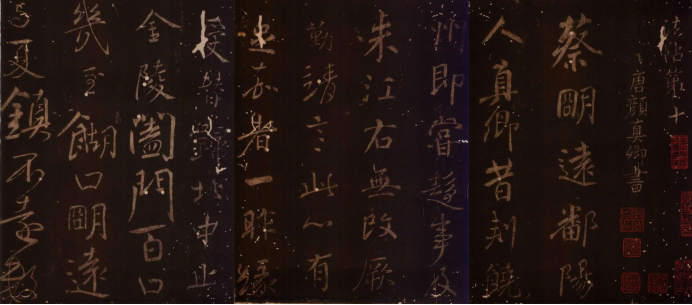 帖第十
唐顏真卿書
蔡明遠鄱陽
人真卿昔刾饒
州即嘗趍事及
來江右無改厥
勤靖言此心有
足嘉者一昨緣
受替歸北中止
金陵闔門百口
幾至餬口明遠
与夏鎮不遠數